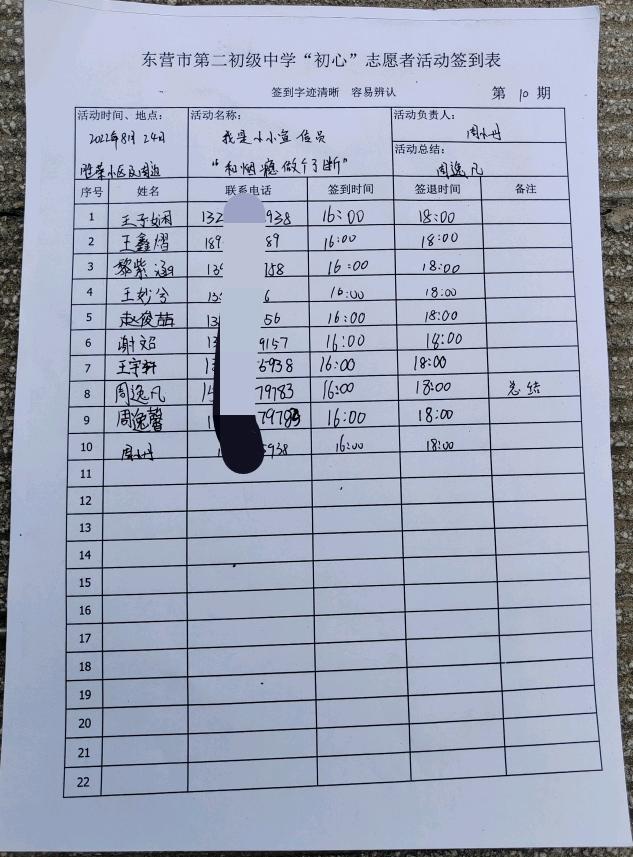 东营市第二初级中学“初心”志愿者活动签到表
签到字迹清晰 容易辨认 第 10 期
活动时间、地点： 活动名称： 活动负责人：
2022年8月24日 我是小小宣传员 周小丹
胜荣小区及周边 “和烟瘾做个了断” 活动总结： 周逸凡
序号 姓名 联系电话 签到时间 签退时间 备注
1 王子娴 132 938 16:00 18:00
2 王鑫熠 189 89 16:00 18:00
3 黎紫涵 139 158 16:00 18:00
4 王妙兮 13 6 16:00 18:00
5 赵俊喆 13 56 16:00 18:00
6 谢文 1 9157 16:00 18:00
7 王宇轩 1 5938 16:00 18:00
8 周逸凡 1 79783 16:00 18:00 总结
9 周逸馨 1 79783 16:00 18:00
10 周小丹 1 5938 16:00 18:00
11
12
13
14
15
16
17
18
19
20
21
22